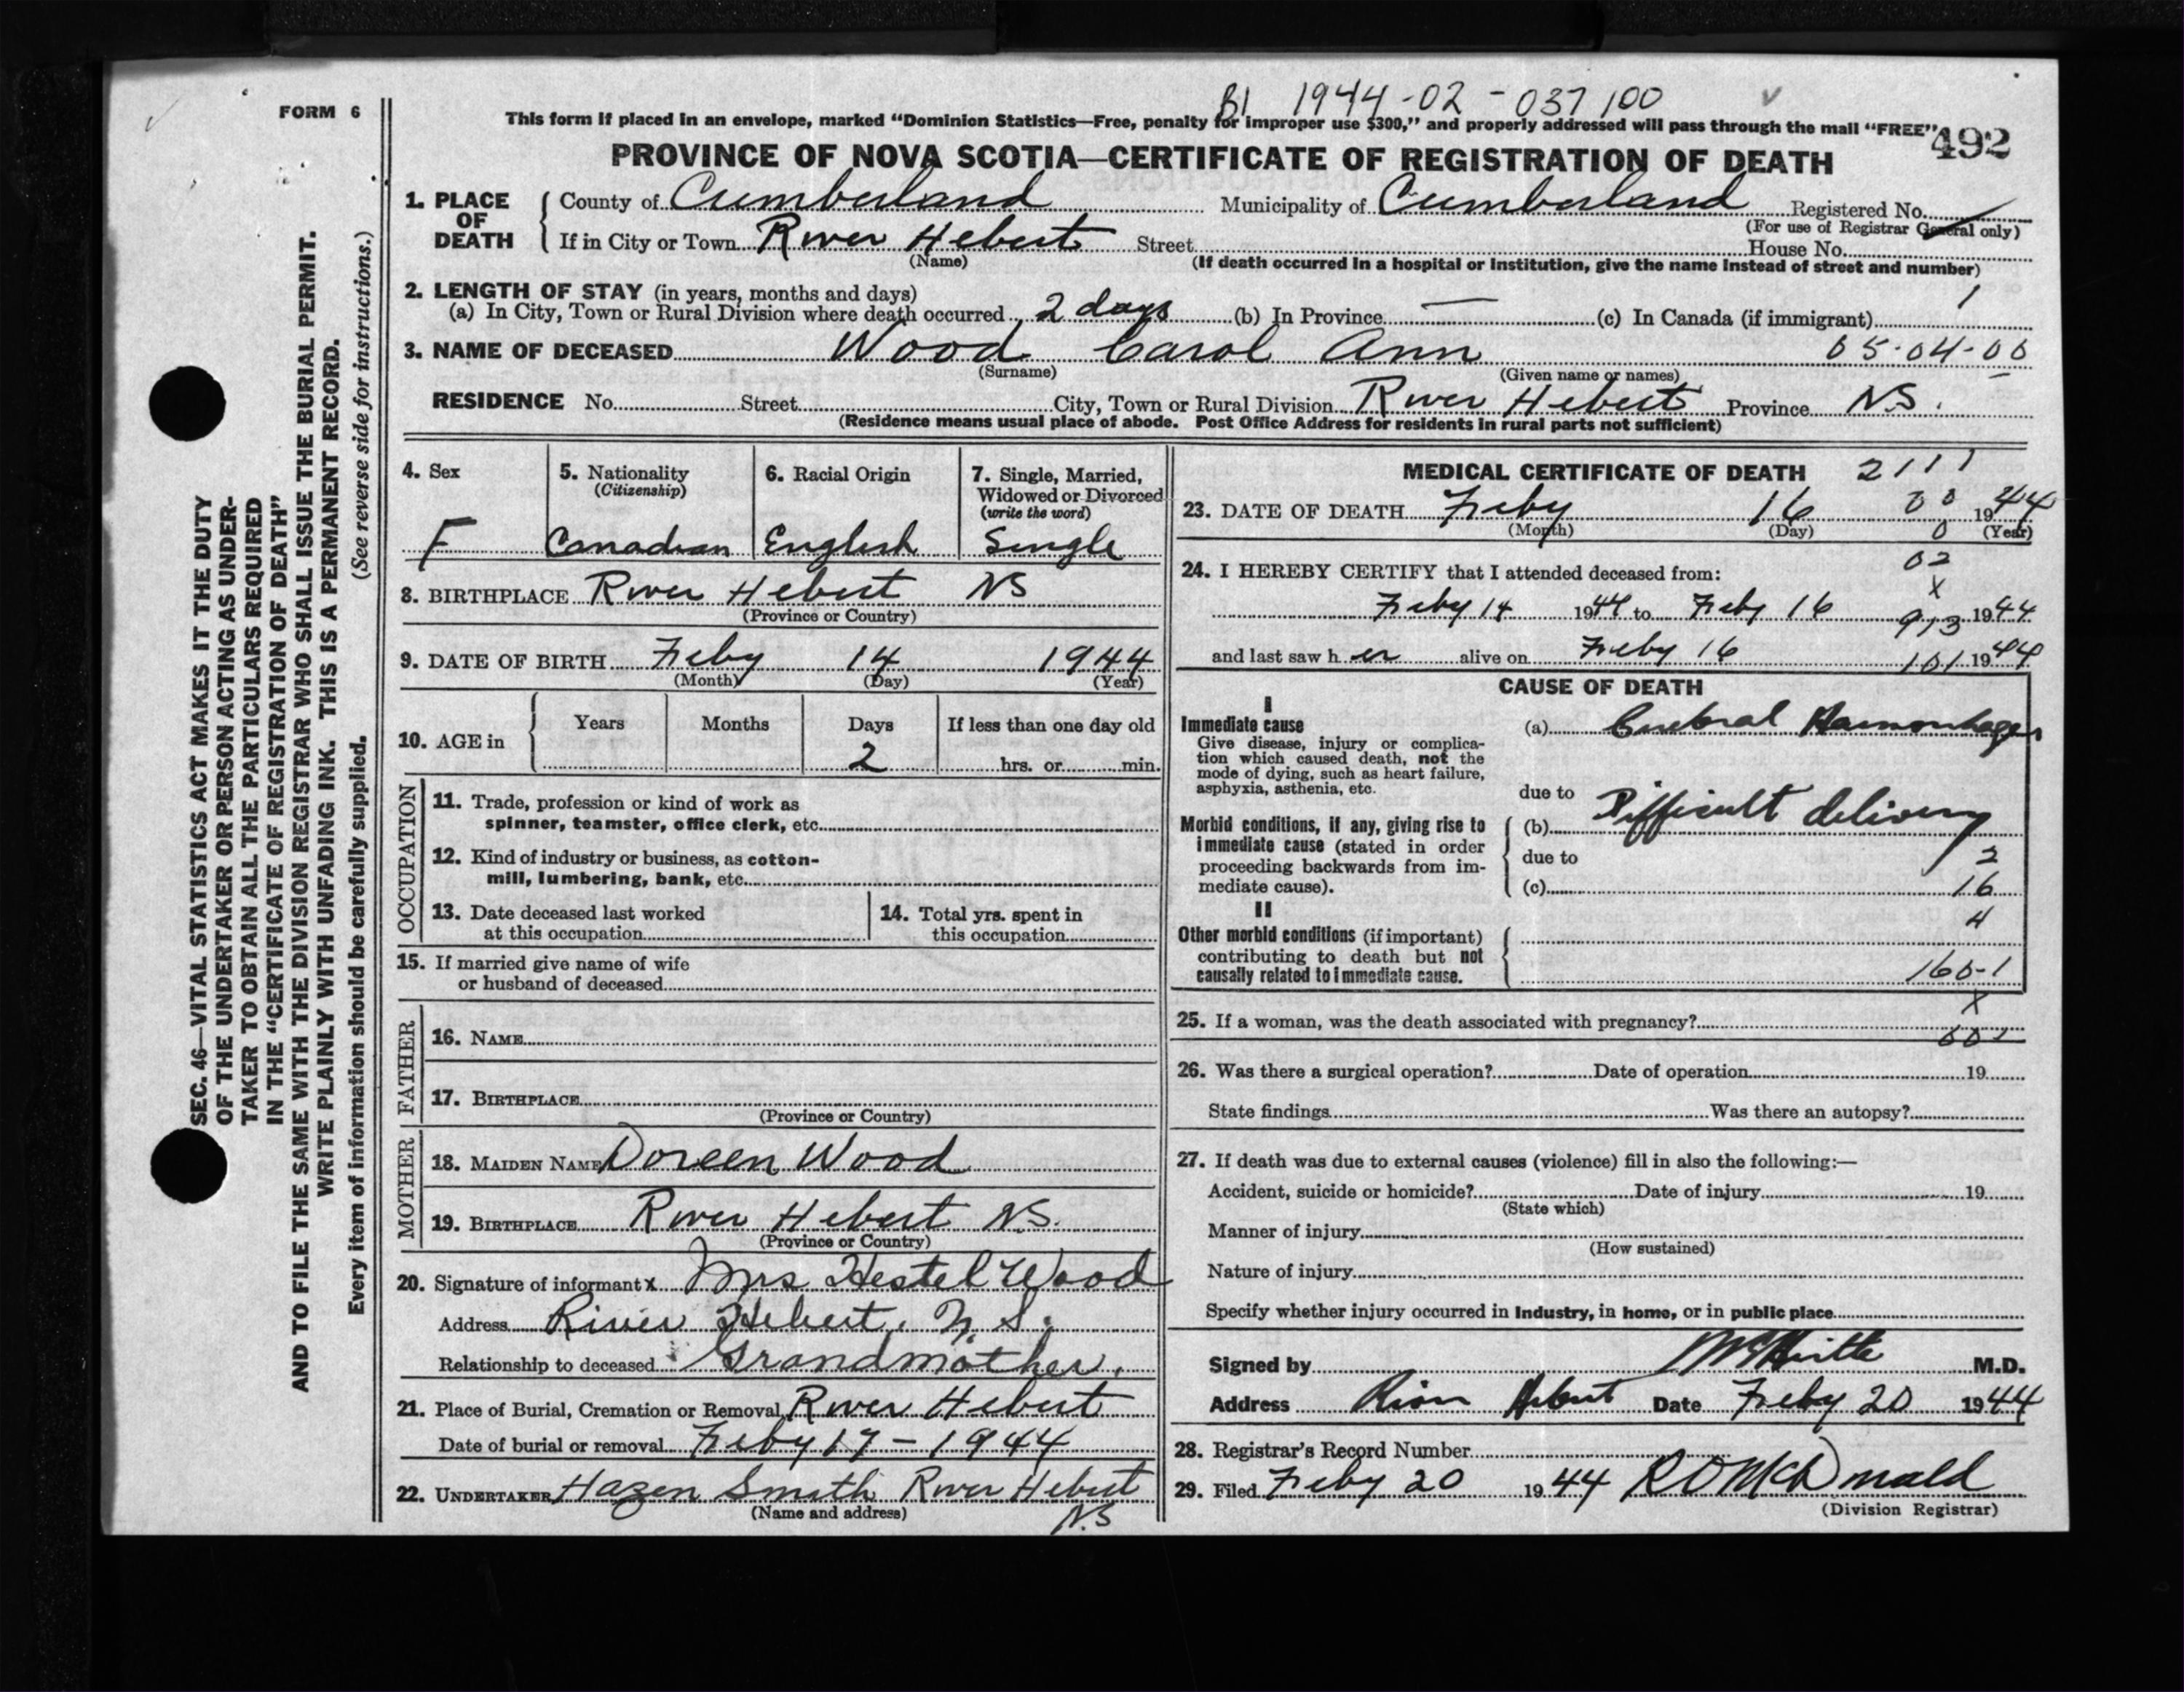 B1 1944-02-037100
FORM 6
This form if placed in an envelope, marked “Dominion Statistics—Free, penalty for improper use $300,” and properly addressed will pass through the mail “FREE”
492
PROVINCE OF NOVA SCOTIA—CERTIFICATE OF REGISTRATION OF DEATH
1. PLACE OF DEATH
County of Cumberland Municipality of Cumberland Registered No.
(For use of Registrar General only)
If in City or Town River Hebert Street House No.
(Name) (If death occurred in a hospital or institution, give the name instead of street and number)
2. LENGTH OF STAY (in years, months and days) 1
(a) In City, Town or Rural Division where death occurred 2 days (b) In Province — (c) In Canada (if immigrant)
3. NAME OF DECEASED Wood Carol Ann 05-04-00
(Surname) (Given name or names)
RESIDENCE No. Street City, Town or Rural Division River Hebert Province N.S.
(Residence means usual place of abode. Post Office Address for residents in rural parts not sufficient)
4. Sex
F
5. Nationality
(Citizenship)
Canadian
6. Racial Origin
English
7. Single, Married,
Widowed or Divorced
(write the word)
Single
8. BIRTHPLACE River Hebert NS
(Province or Country)
9. DATE OF BIRTH Feby 14 1944
(Month) (Day) (Year)
10. AGE in
Years Months Days If less than one day old
2 hrs. or min.
OCCUPATION
11. Trade, profession or kind of work as
spinner, teamster, office clerk, etc.
12. Kind of industry or business, as cotton-
mill, lumbering, bank, etc.
13. Date deceased last worked
at this occupation
14. Total yrs. spent in
this occupation
15. If married give name of wife
or husband of deceased
FATHER
16. NAME
17. BIRTHPLACE
(Province or Country)
MOTHER
18. MAIDEN NAME Doreen Wood
19. BIRTHPLACE River Hebert N.S.
(Province or Country)
20. Signature of informant x Mrs Hestel Wood
Address River Hebert, N.S.
Relationship to deceased Grandmother.
21. Place of Burial, Cremation or Removal River Hebert
Date of burial or removal Feby 17 - 1944
22. UNDERTAKER Hazen Smith River Hebert
(Name and address) N.S
MEDICAL CERTIFICATE OF DEATH 2111
23. DATE OF DEATH Feby 16 00 1944
(Month) (Day) 0 (Year)
24. I HEREBY CERTIFY that I attended deceased from: 02
X
Feby 14 1944 to Feby 16 1944
913
and last saw her alive on Feby 16 1944
101
CAUSE OF DEATH
I
Immediate cause
Give disease, injury or complica-
tion which caused death, not the
mode of dying, such as heart failure,
asphyxia, asthenia, etc.
(a) Cerebral Haemorhage
due to
Morbid conditions, if any, giving rise to
immediate cause (stated in order
proceeding backwards from im-
mediate cause).
(b) Difficult delivery
due to 2
(c) 16
II
4
Other morbid conditions (if important)
contributing to death but not
causally related to immediate cause.
160-1
X
25. If a woman, was the death associated with pregnancy?
26. Was there a surgical operation? Date of operation 19
State findings Was there an autopsy?
27. If death was due to external causes (violence) fill in also the following:—
Accident, suicide or homicide? Date of injury 19
(State which)
Manner of injury
(How sustained)
Nature of injury
Specify whether injury occurred in Industry, in home, or in public place
Signed by M.D.
Address River Hebert Date Feby 20 1944
28. Registrar's Record Number
29. Filed Feby 20 1944 R O McDonald
(Division Registrar)
SEC. 46—VITAL STATISTICS ACT MAKES IT THE DUTY
OF THE UNDERTAKER OR PERSON ACTING AS UNDER-
TAKER TO OBTAIN ALL THE PARTICULARS REQUIRED
IN THE “CERTIFICATE OF REGISTRATION OF DEATH”
AND TO FILE THE SAME WITH THE DIVISION REGISTRAR WHO SHALL ISSUE THE BURIAL PERMIT.
WRITE PLAINLY WITH UNFADING INK. THIS IS A PERMANENT RECORD.
Every item of information should be carefully supplied. (See reverse side for instructions.)